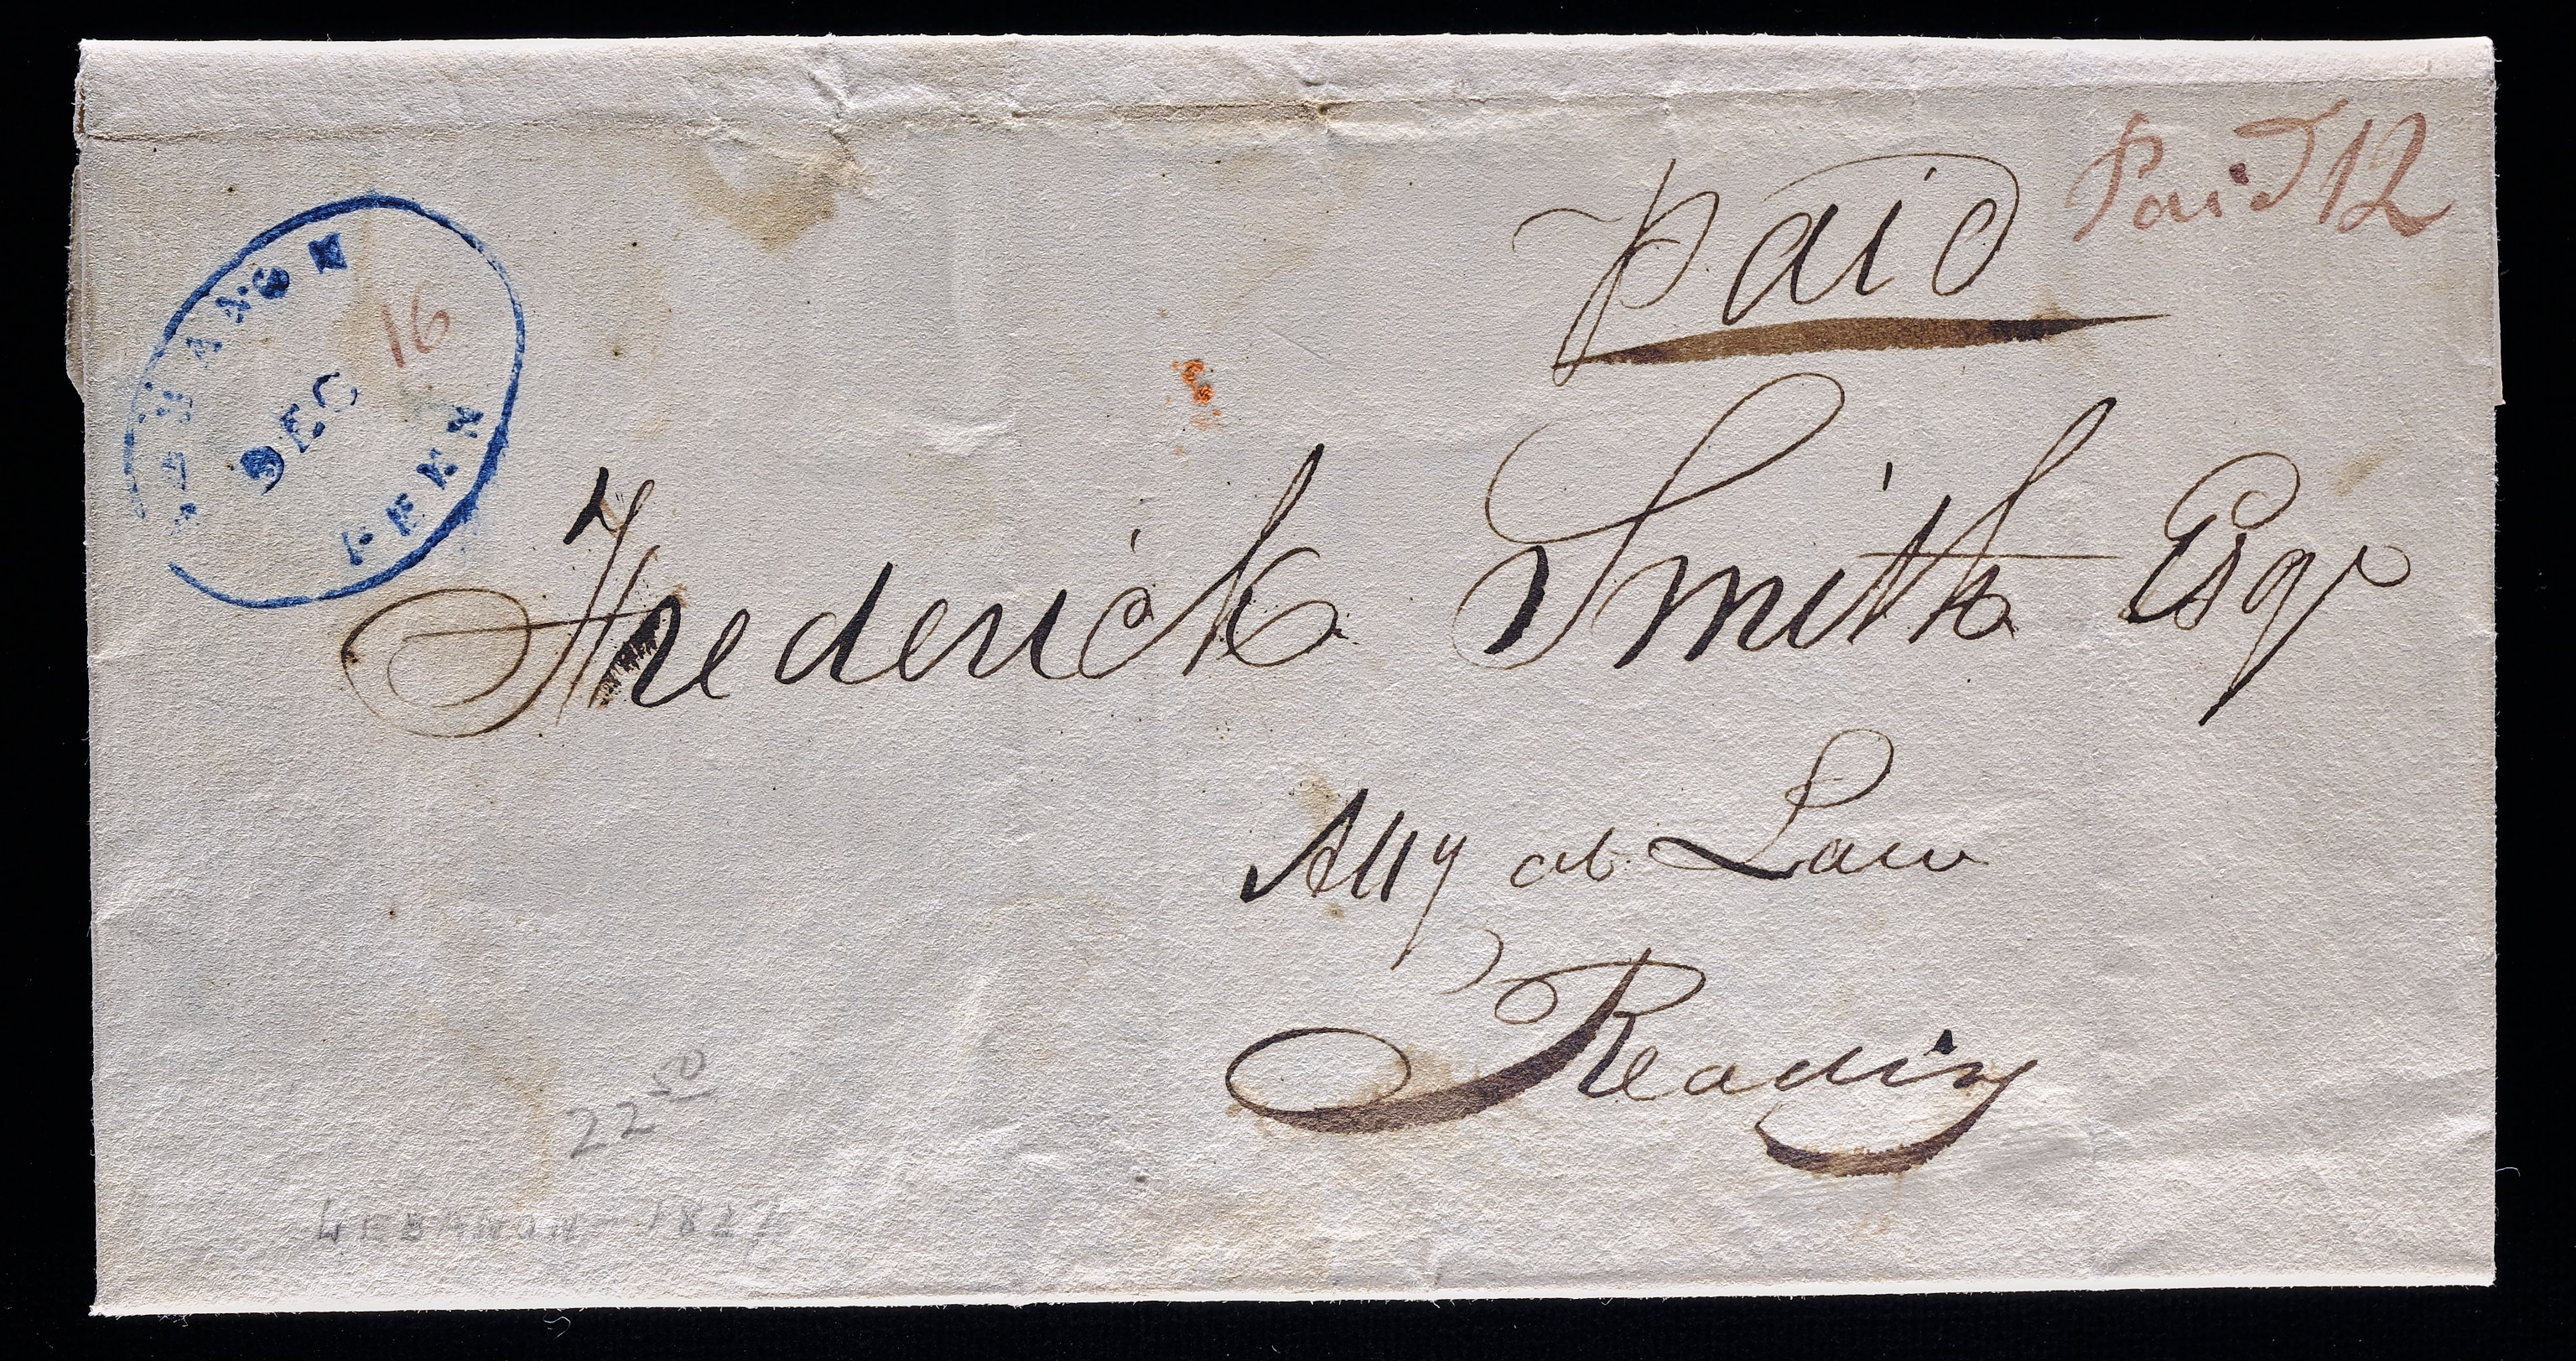 Paid 12
paid
LEBANON
16
DEC
PENN
Frederick Smith Esqr
Atty at Law
Reading
22 50
LEBANON